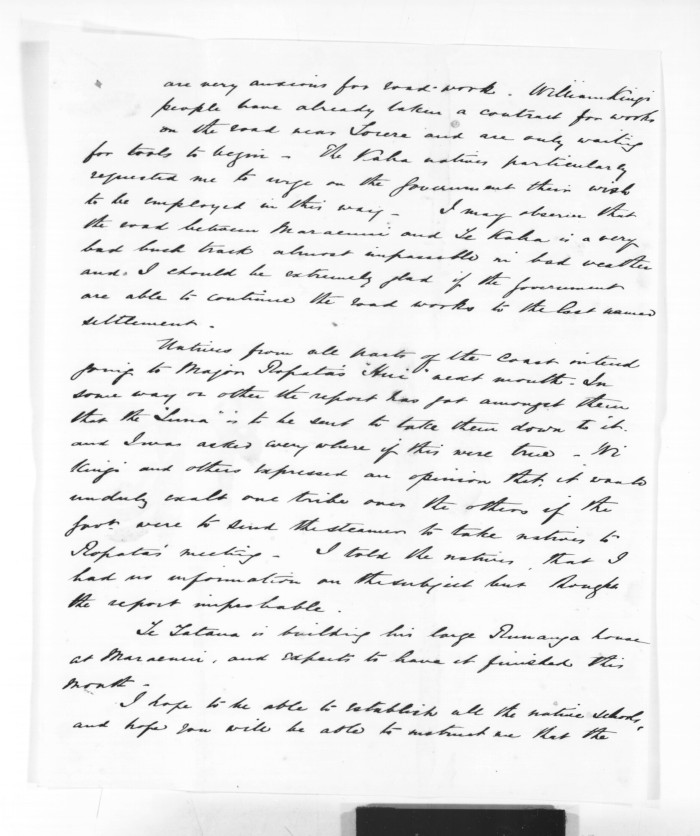 are very anxious for road-work. William King's
people have already taken a contract for works
on the road near Torere and are only waiting
for tools to begin - The Kaha natives particularly
requested me to urge on the Government their wish
to be employed in this way - I may observe that
the road between Maraenui and Te Kaha is a very
bad bush track almost impassable in bad weather
and I should be extremely glad if the government
are able to continue the road works to the last named
settlement -
Natives from all parts of the coast intend
going to Major Ropata's "Hui" next month - In
some way or other the report has got amongst them
that the "Luna" is to be sent to take them down to it
and I was asked everywhere if this were true - Wi
Kingi and others expressed an opinion that, it would
unduly exalt one tribe over the others if the
Govt. were to send the steamer to take natives to
Ropata's meeting - I told the natives, that I
had no information on the subject but thought
the report improbable.
Te Tatana is building his large Runanga house
at Maraenui, and expects to have it finished this
month -
I hope to be able to establish all the native schools,
and hope you will be able to instruct me that the